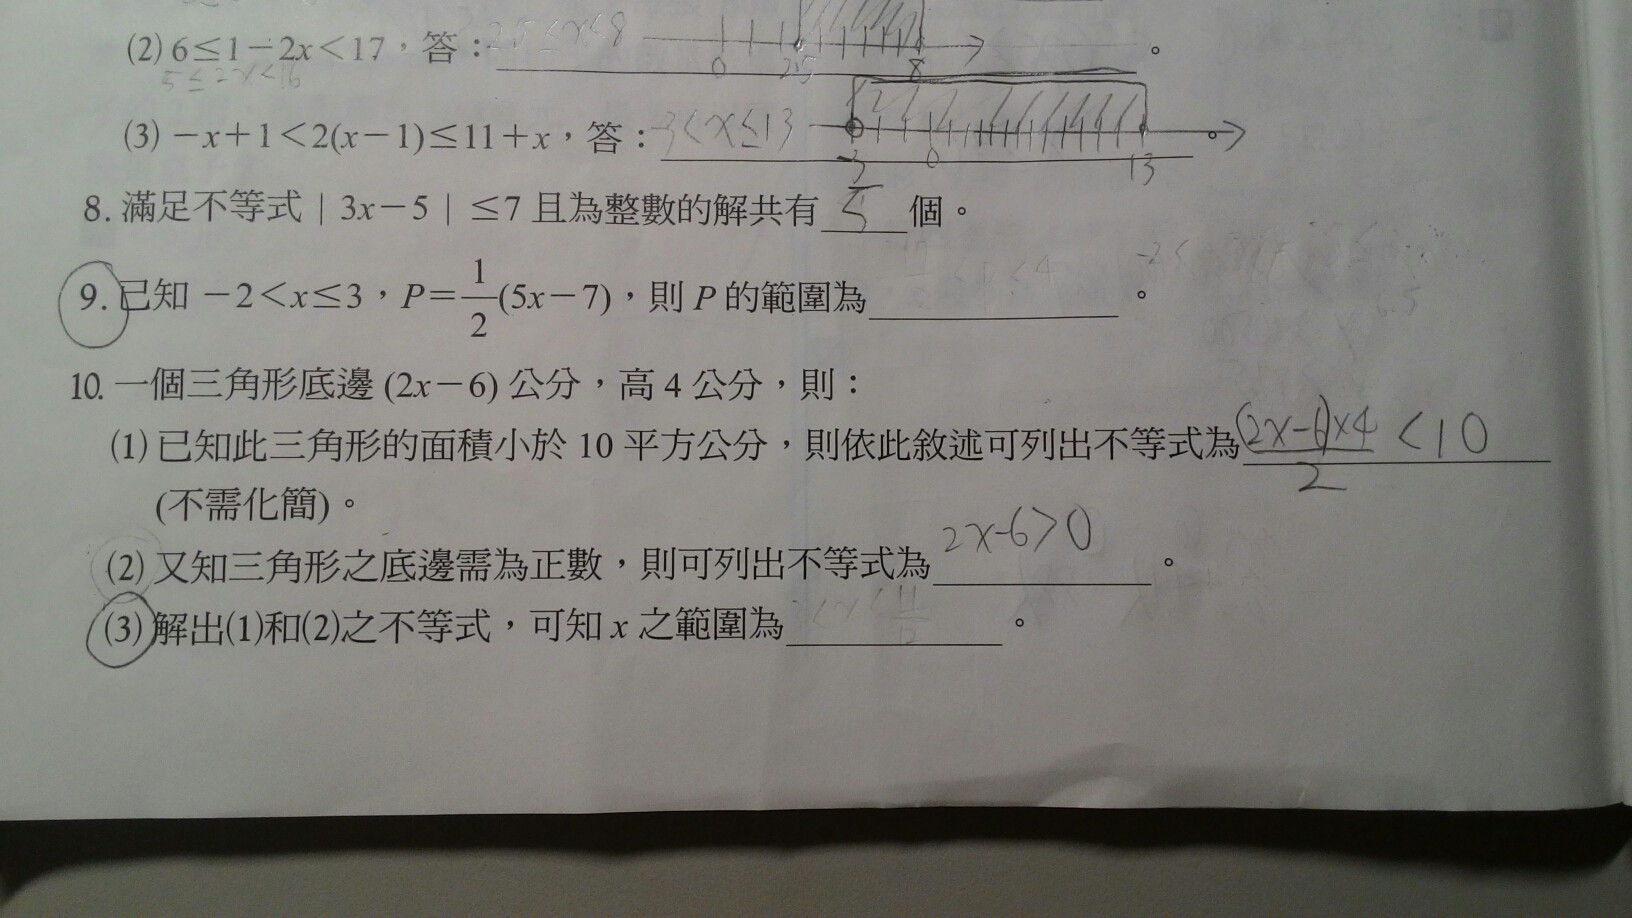 (2) 6≤1-2x<17，答：2.5≤x≤8 。
0 2.5 8
5≤2x<16
(3) -x+1<2(x-1)≤11+x，答：-3<x≤13 。
-3 0 13
8. 滿足不等式 | 3x-5 | ≤7 且為整數的解共有 5 個。
9. 已知 -2<x≤3，P=1/2(5x-7)，則 P 的範圍為 。
10. 一個三角形底邊 (2x-6) 公分，高 4 公分，則：
(1) 已知此三角形的面積小於 10 平方公分，則依此敘述可列出不等式為 (2x-6)×4/2 <10
(不需化簡)。
(2) 又知三角形之底邊需為正數，則可列出不等式為 2x-6>0 。
(3) 解出(1)和(2)之不等式，可知 x 之範圍為 。